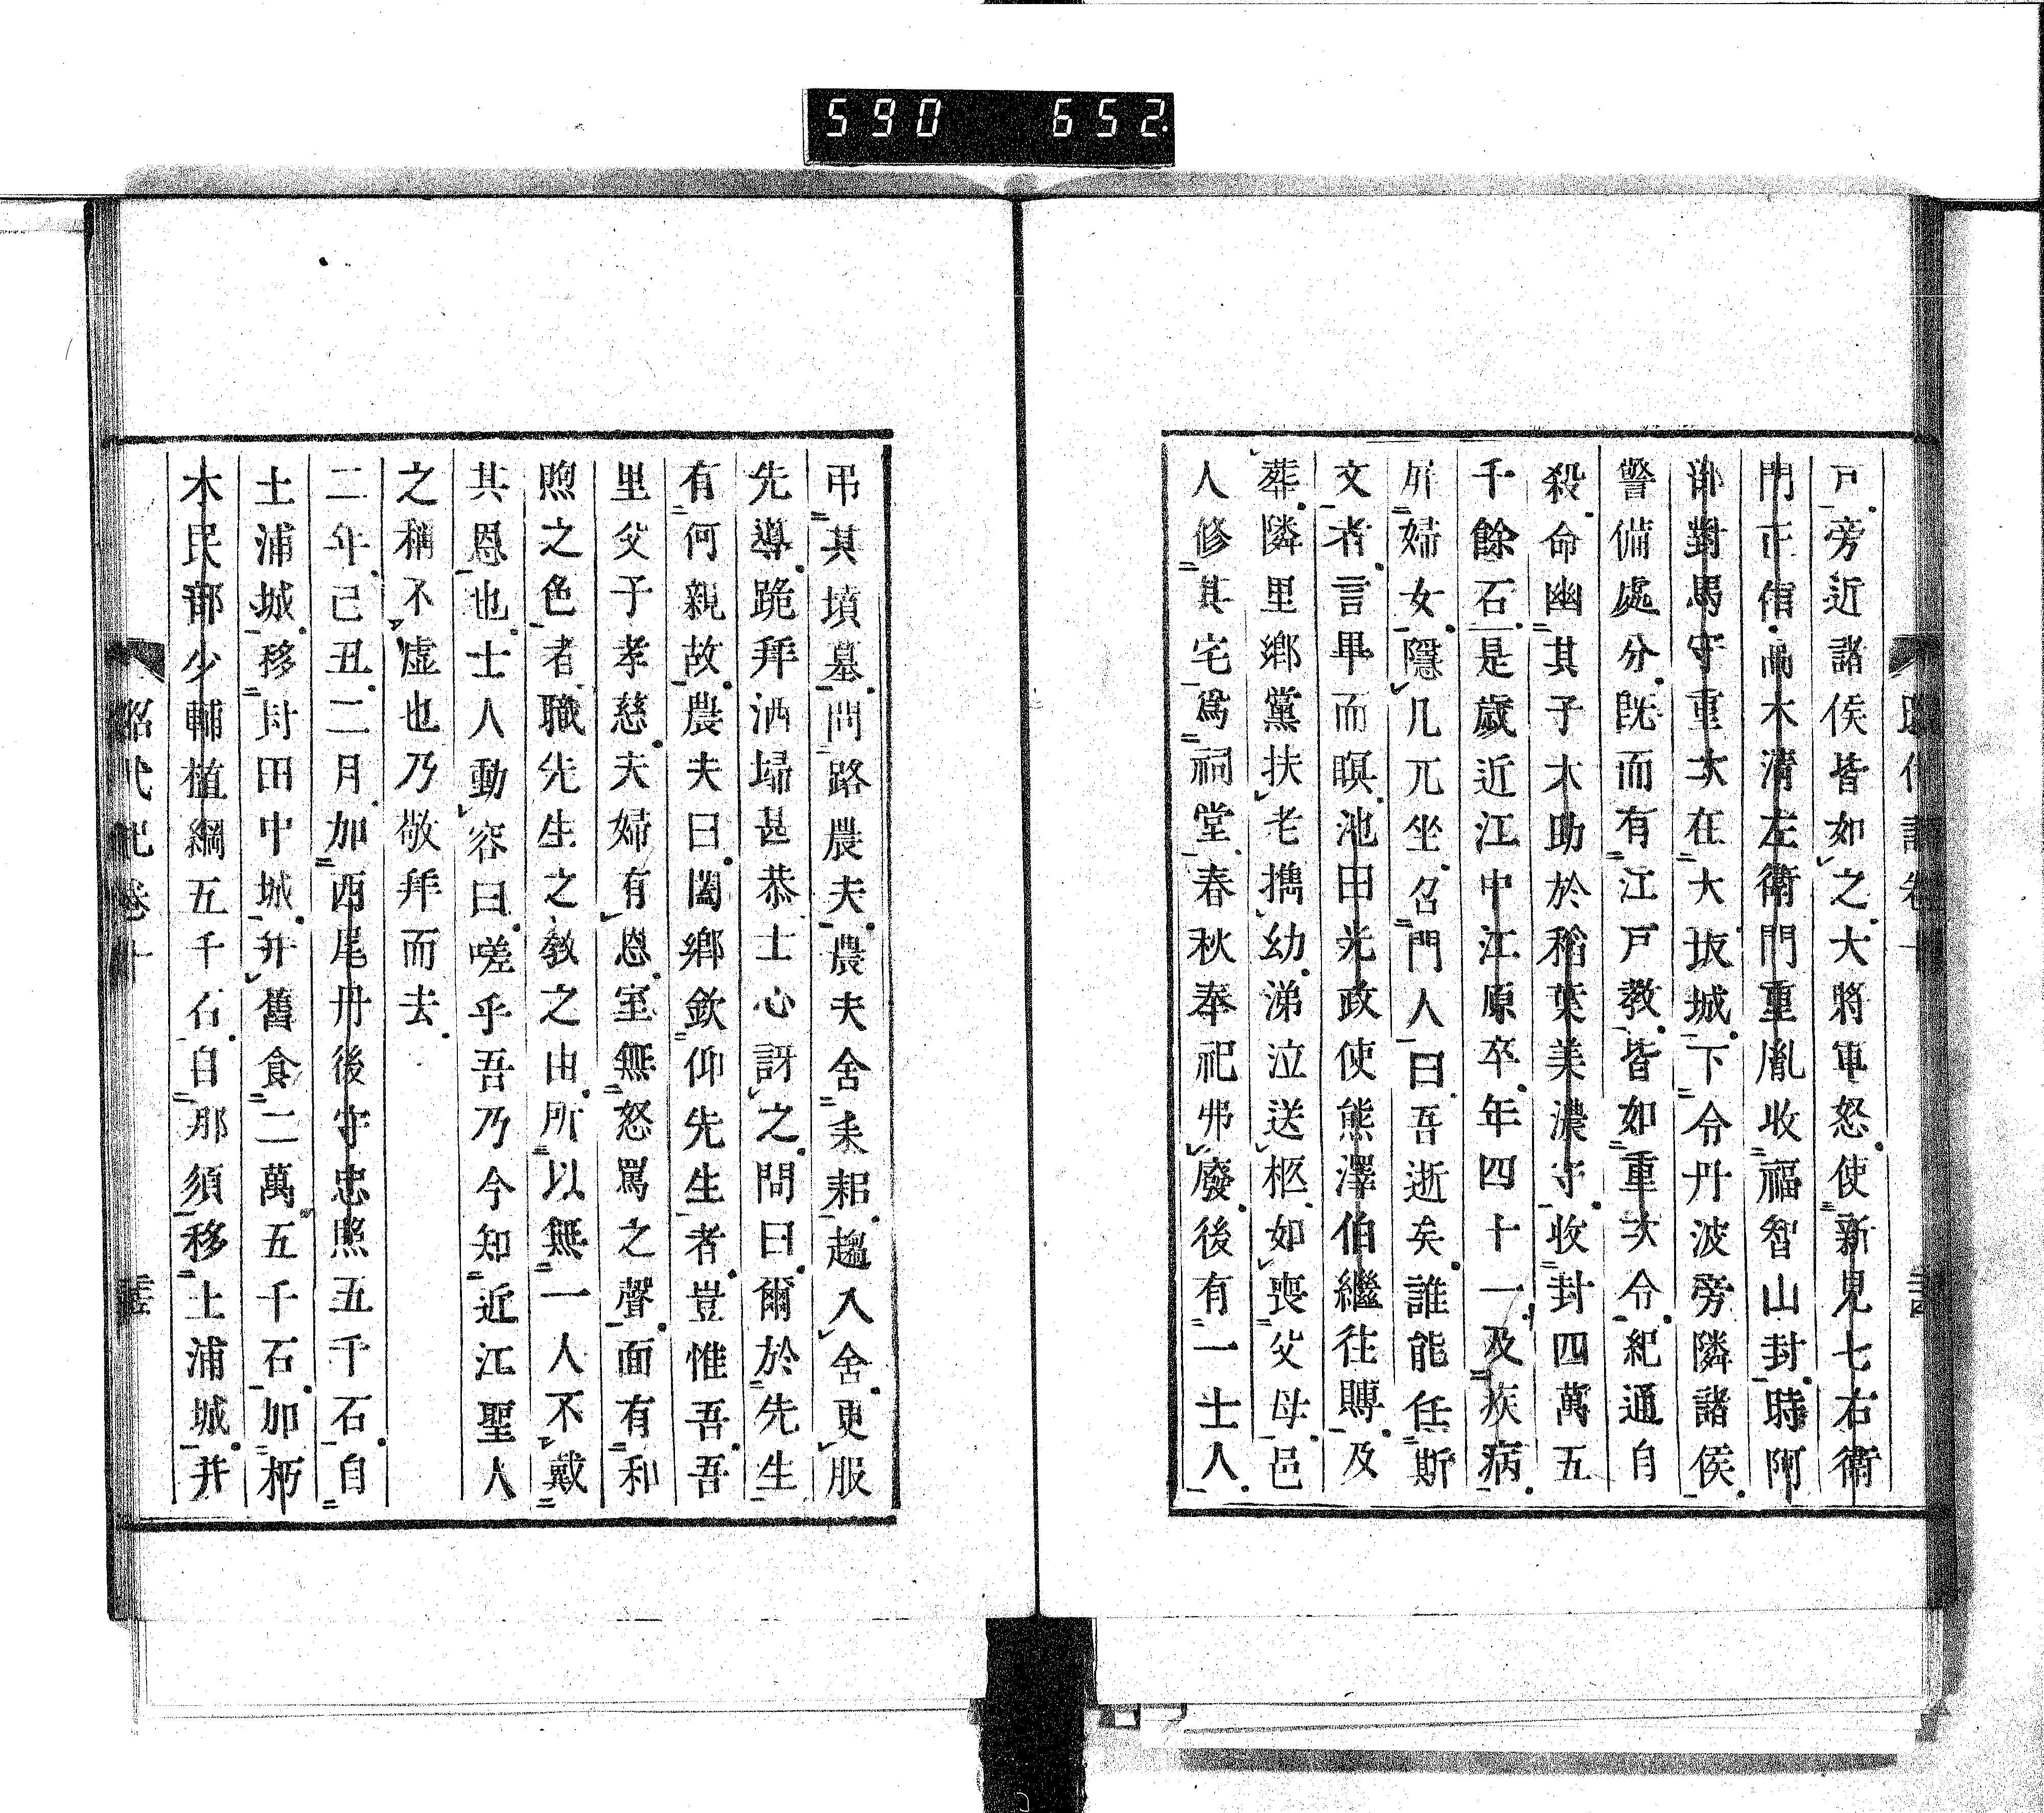 590 652
戸旁近諸侯皆如之大將軍怒使新見七右衛
門正信高木清左衛門重胤收福智山封時阿
部對馬守重次在大坂城下令丹波旁隣諸侯
警備處分既而有江戸教皆如重次令紀通自
殺命幽其子大助於稻葉美濃守收封四萬五
千餘石是歲近江中江原卒年四十一及疾病
屏婦女隱几兀坐召門人曰吾逝矣誰能任斯
文者言畢而瞑池田光政使熊澤伯繼往賻及
葬隣里鄉黨扶老攜幼涕泣送柩如喪父母邑
人修其宅爲祠堂春秋奉祀弗廢後有一士人
弔其墳墓問路農夫農夫舍耒耜趨入舍更服
先導跪拜洒埽甚恭士心訝之問曰爾於先生
有何親故農夫曰闔鄉欽仰先生者豈惟吾吾
里父子孝慈夫婦有恩室無怒罵之聲面有和
煦之色者職先生之教之由所以無一人不戴
其恩也士人動容曰嗟乎吾乃今知近江聖人
之稱不虛也乃敬拜而去
二年己丑二月加西尾丹後守忠照五千石自
土浦城移封田中城并舊食二萬五千石加朽
木民部少輔植綱五千石自那須移土浦城并
昭代記卷十